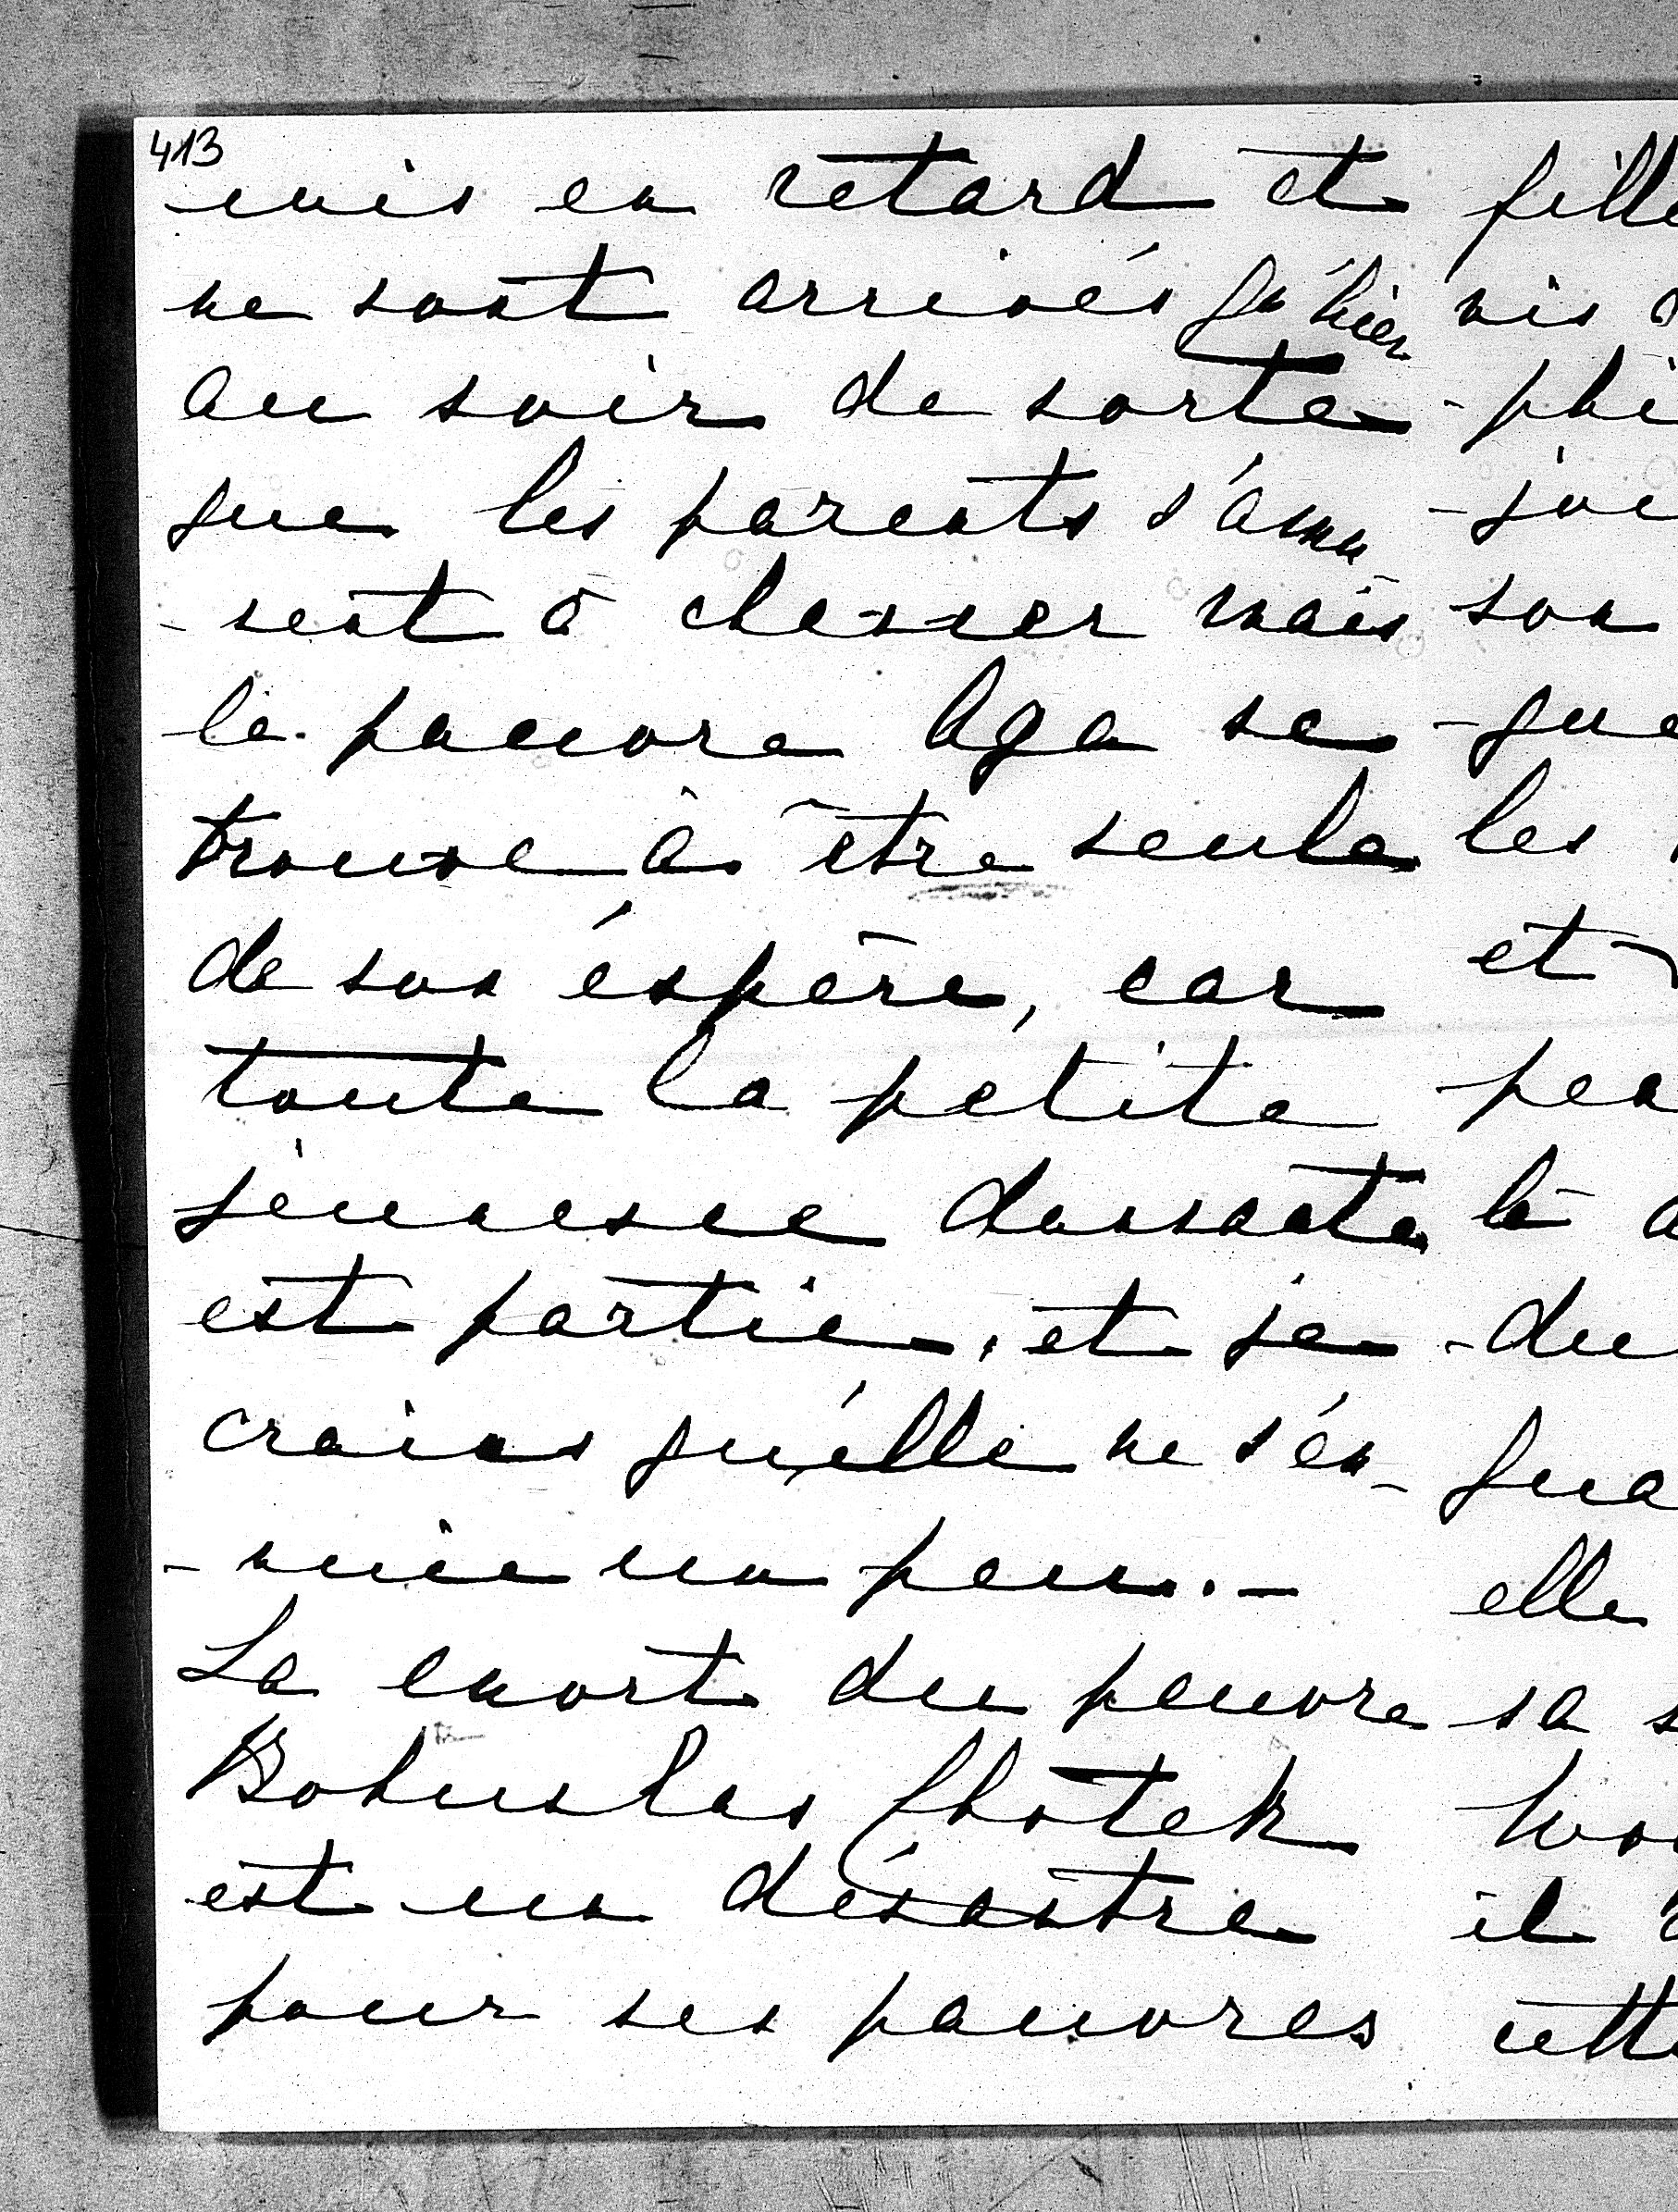 413
mis en retard et
ne sont arrivés qu'hier
au soir de sorte
que les parents s'amu
-sent à chasser mais
le pauvre Aga se
trouve à être seule
de son éspère, car
toute la petite
jeunesse dansante
est partie, et je
crains qu'elle ne s'en-
-nuie un peu. -
La mort du pauvre
Bohuslas Chotek
est un désastre
pour ses pauvres
fille
nis
-phi
-jou
son
-que
les
et
pen
là a
-du
qua
elle
sa s
Wo
il
cette